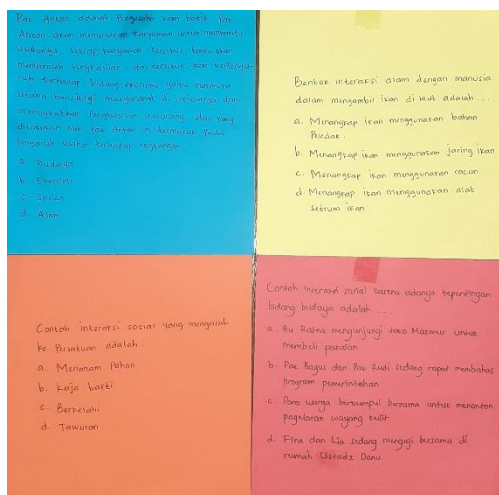 Pak Anton adalah Pengusaha ikan bakar. Pak
Anton akan memerlukan karyawan untuk membantu
Usahanya. Setiap karyawan tersebut tentu akan
memperoleh Penghasilan. Hal tersebut akan berpenga-
ruh terhadap bidang ekonomi, yaitu membuka
Usaha baru bagi masyarakat di sekitarnya dan
meningkatkan Penghasilan seseorang. Hal yang
dilakukan oleh Pak Anton ini termasuk Pada
Pengaruh usaha terhadap lingkungan
a. Budaya
b. Ekonomi
c. Sosial
d. Alam
Bentuk interaksi alam dengan manusia
dalam mengambil ikan di laut adalah ...
a. Menangkap ikan menggunakan bahan
Peledak.
b. Menangkap ikan menggunakan jaring ikan
c. Menangkap ikan menggunakan racun.
d. Menangkap ikan menggunakan alat
setrum ikan.
Contoh interaksi sosial yang mengarah
ke Persatuan adalah ...
a. Menanam Pohon
b. Kerja bakti
c. Berkelahi
d. Tawuran
Contoh interaksi sosial karna adanya kepentingan
bidang budaya adalah ...
a. Bu Ratna mengunjungi toko Makmur untuk
membeli pakaian.
b. Pak Bagus dan Pak Rudi sedang rapat membahas
program pemerintahan.
c. Para warga berkumpul bersama untuk menonton
pagelaran wayang kulit
d. Fina dan Lia sedang mengaji bersama di
rumah Ustadz Danu